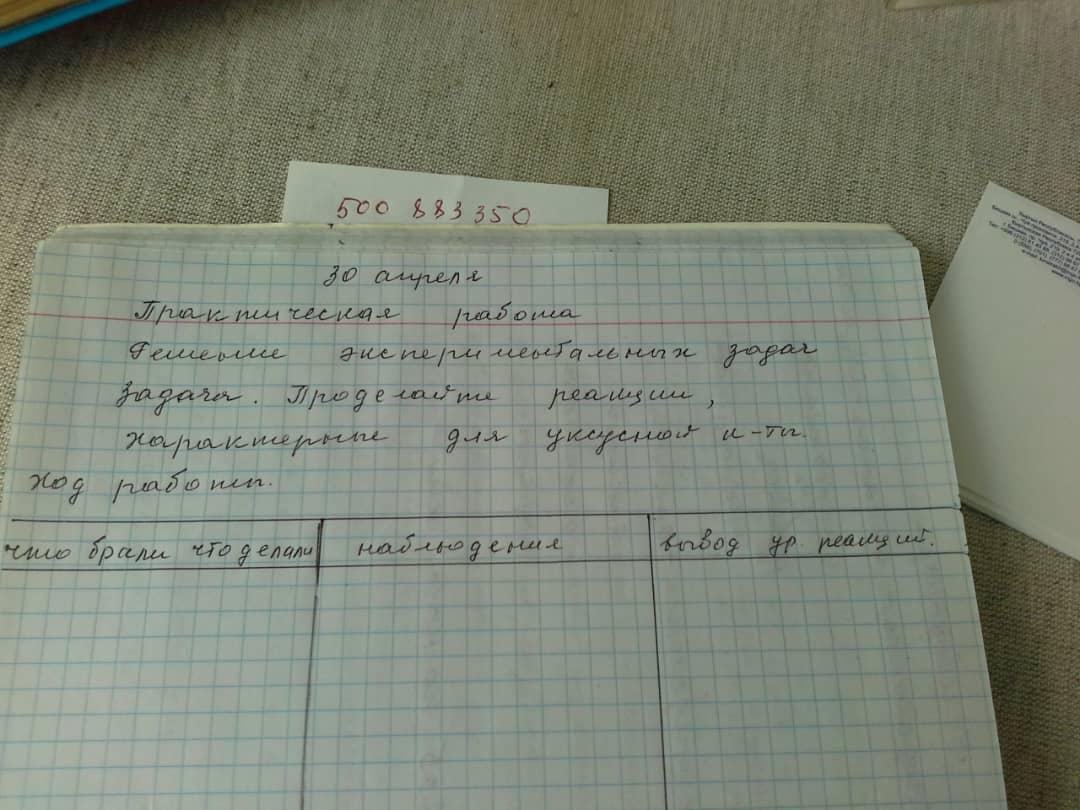 500 883 350
30 апреля
Практическая работа
Решение экспериментальных задач
Задача. Проделайте реакции,
характерные для уксусной к-ты.
Ход работы.
что брали что делали
наблюдения
вывод ур. реакций.